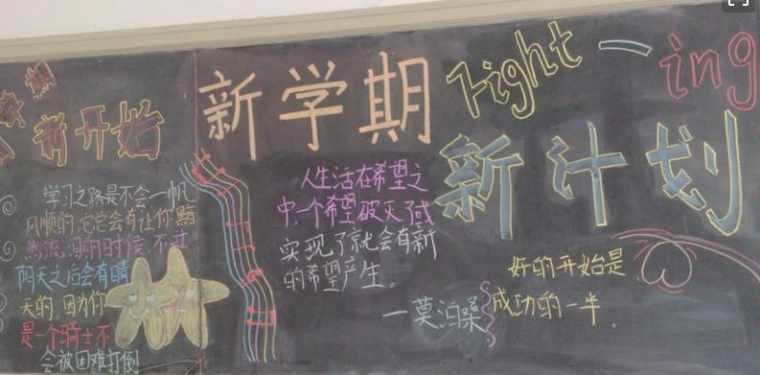 新开始
新学期
Fight一ing
新计划
学习之路是不会一帆
风顺的,它会有让你黯
然流泪的时候,不过
阴天之后会有晴
天的,因为你
是一个骑士不
会被困难打倒
人生活在希望之
中,一个希望破灭了或
实现了就会有新
的希望产生。
一莫泊桑
好的开始是
成功的一半.